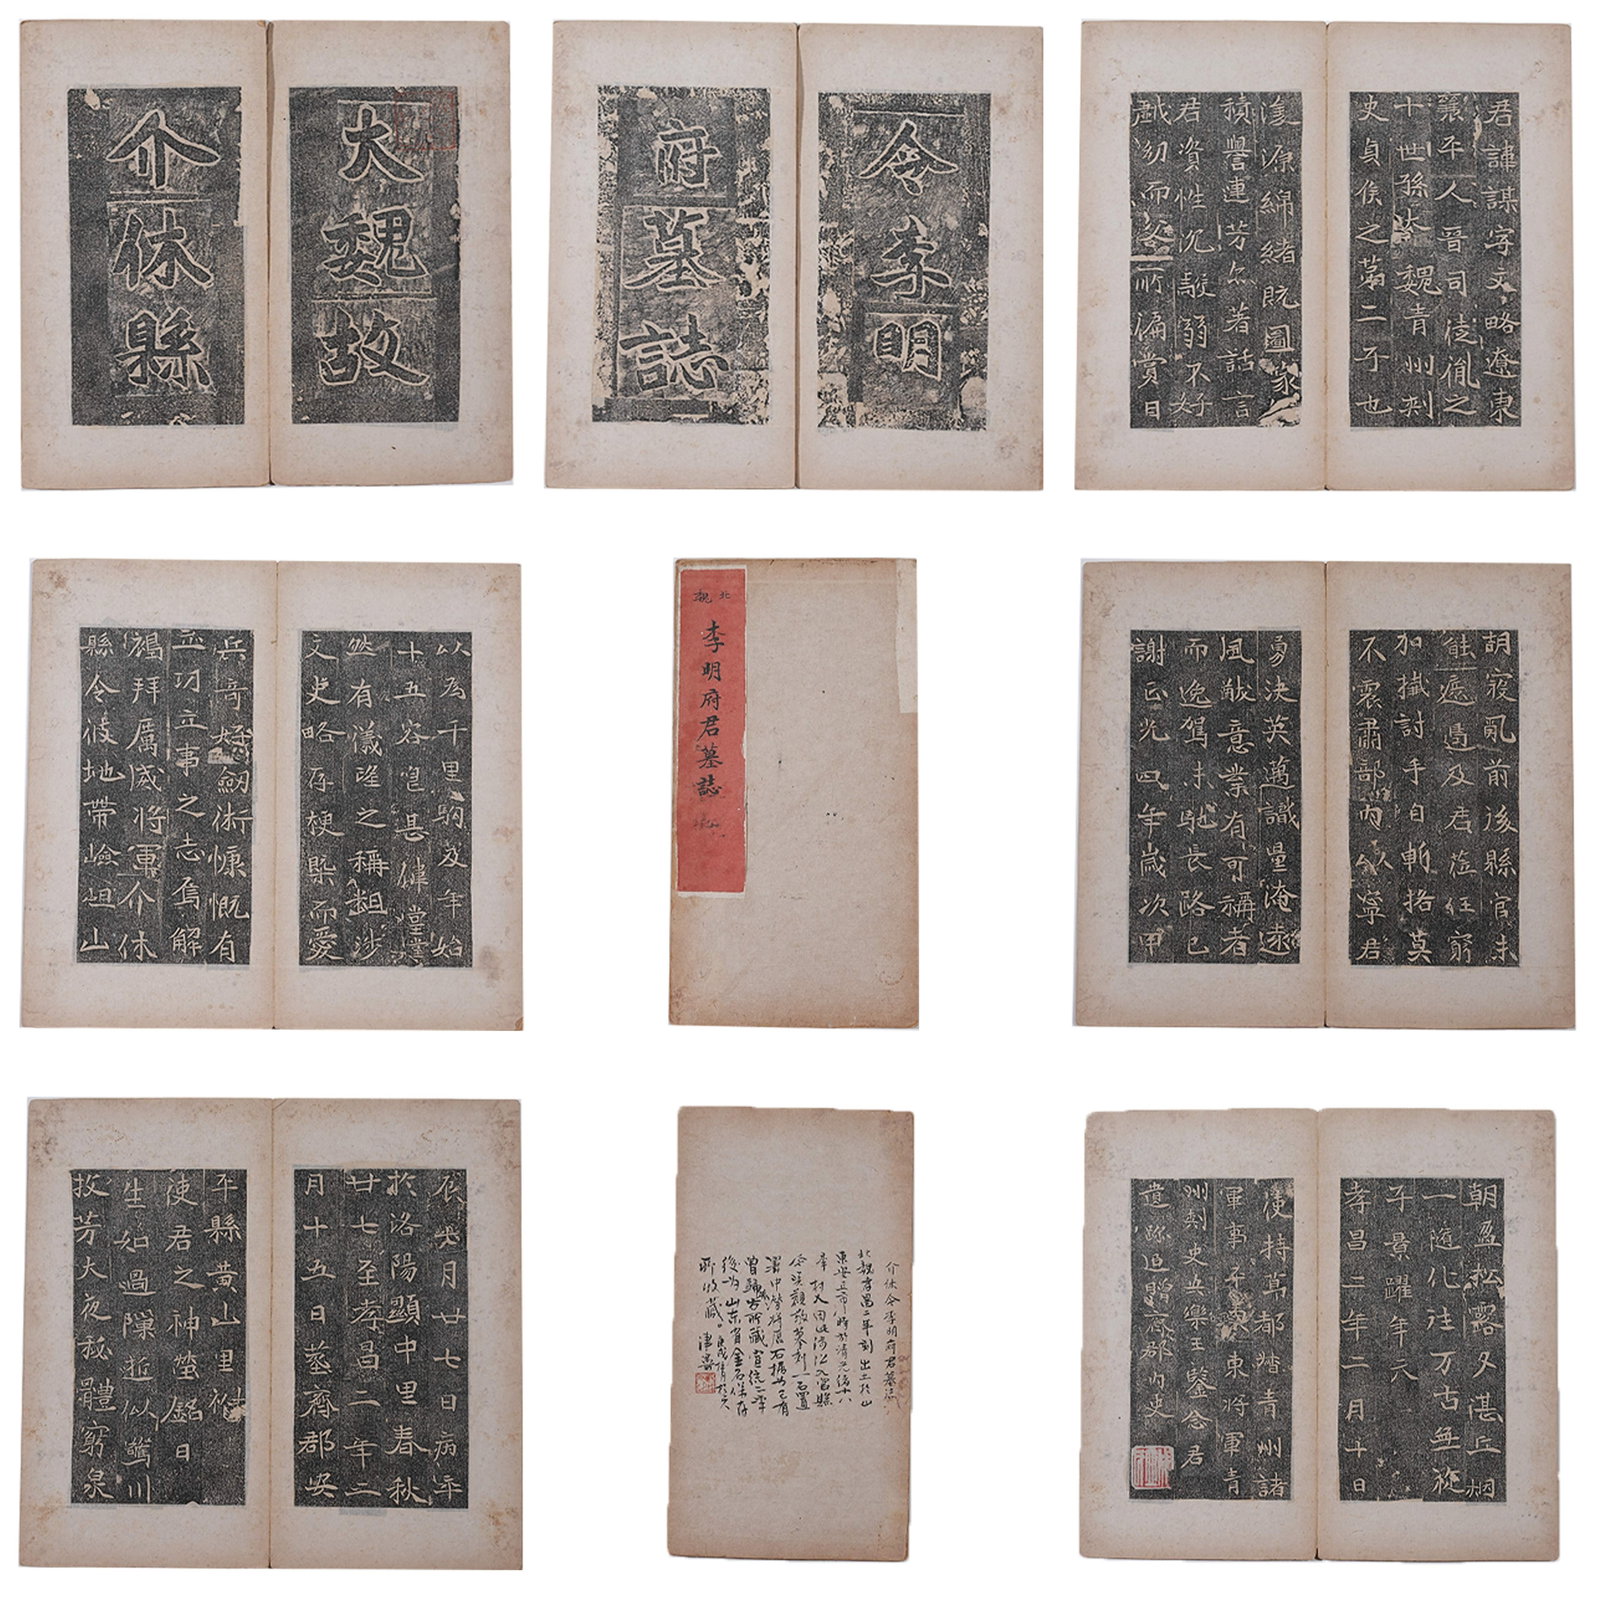 大魏故
介休縣
令李明
府墓誌
君諱謀字文略遼東
襄平人晉司徒胤之
十世孫魏青州刺
史貞侯之第二子也
濬源綿緒旣圖家
積譽連芳亦著話言
君資性沉毅弱不好
戲幼而
以爲千里駒及年始
十五容皃甚偉堂堂
然有儀望之稱詛涉
文史略存梗槩而愛
兵奇好劒術慷慨有
立功立事之志焉解
褐拜厲威將軍介休
縣令彼地帶嶮岨山
北魏
李明府君墓誌
胡寇亂前後縣官未
能遮遏及君莅任窮
加撾討手自斬格莫
不震肅部內以寧君
勇決英邁識量淹遠
風猷意業有可稱者
而逸駕未馳長路已
謝正光四年歲次甲
辰 月廿七日病卒
於洛陽顯中里春秋
廿七至孝昌二年二
月十五日葬齊郡安
平縣黃山里
使君之神塋銘曰
生如過隙逝似驚川
收芳大夜秘體窮泉
介休令李明府君墓誌
北魏孝昌二年刻出土於山
東安丘
後爲山東省金石保存
所收藏
朝盈松露夕湛丘烟
一隨化往万古無旋
子景躍年六
孝昌二年二月十日
使持節都督青州諸
軍事 東將軍青
州刺史安樂王鑒念君
遺跡追贈齊郡內史